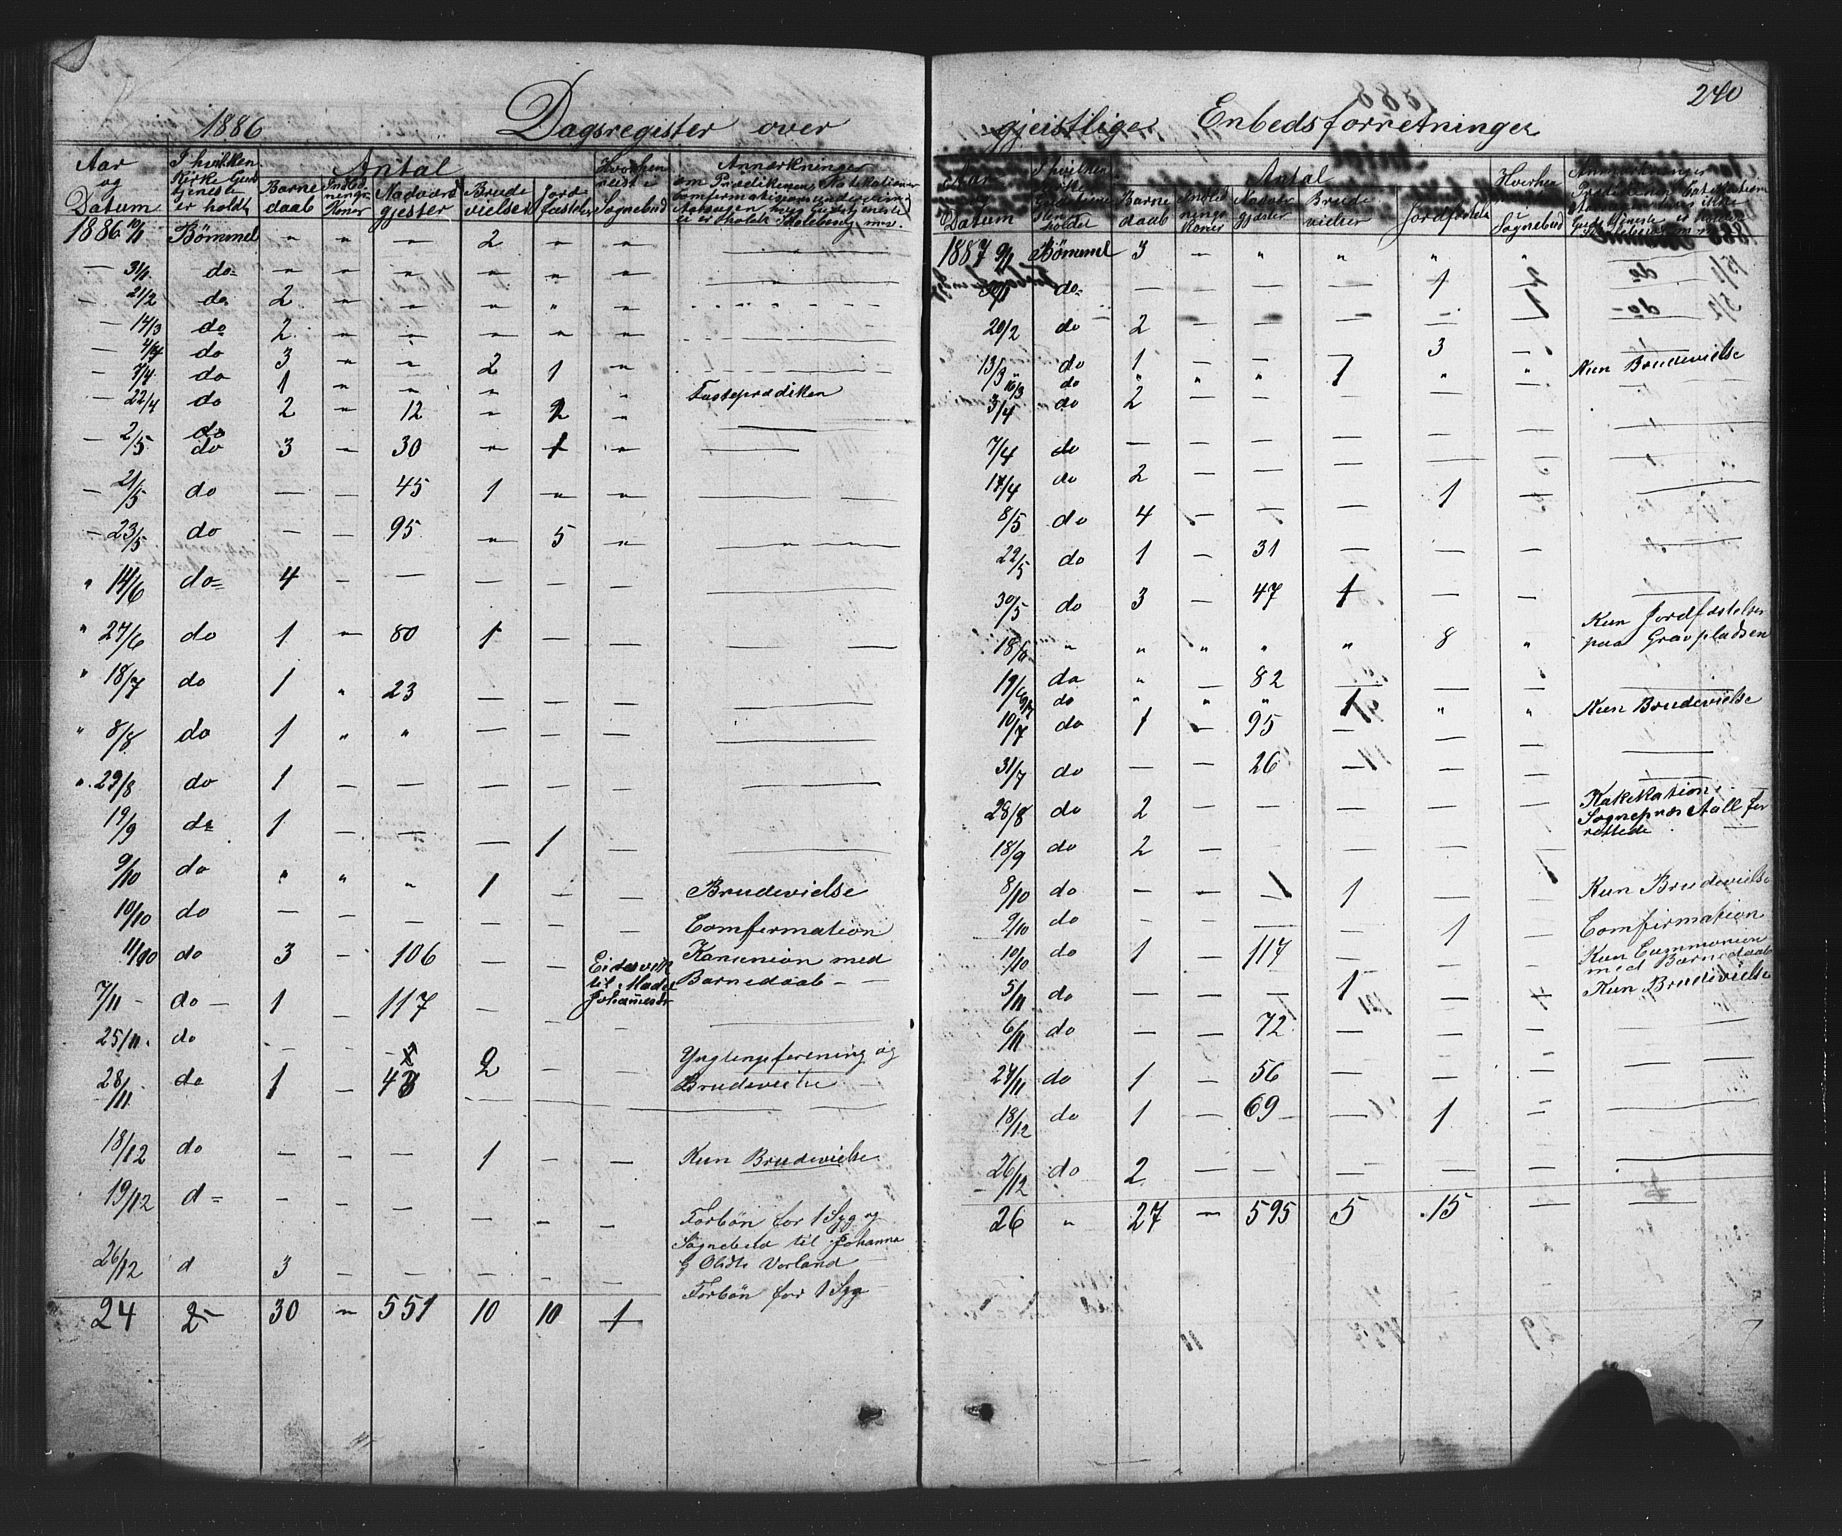 240
1886 Dagsregister over gjeistlige Enbedsforretninger
Aar og Datum | I hvilken Kirke Guds tjeneste er holdt | Antal | Barne daab | Nadverd gjester | Brude vielser | Jord fæstelser | Sognebud | Anmærkninger
1886 10/1 Bömmel " " — 2 " "
— 31/1 do " " " " " "
— 21/2 do 2 " " " " "
— 14/3 do 2 " — " " "
— 4/4 do 3 " " 2 1 "
— 7/4 do 1 " " " "
— 22/4 do 2 " 12 " 2 " Fasteprædiken
do
— 2/5 do 3 " 30 " 1 "
— 21/5 do — — 45 1 " "
— 23/5 do — — 95 " 5 "
" 14/6 do 4 — — — — —
" 27/6 do 1 — 80 1 — —
" 18/7 do 1 " 23 — — —
" 8/8 do 1 " " — — —
" 29/8 do 1 — — — — —
19/9 do 1 — — — 1 —
9/10 do " " " 1 — — Brudevielse
10/10 do — — — — — — Comfermation
11/10 do 3 — 106 — — Kanunion med
Barnedaab
7/11 do 1 — 117 — — Eidesvik til Mader Johannesen
25/11 do — — — 2 — — Ynglingeferening og
Brudevielse
28/11 do 1 — 43 — — —
18/12 do — — — 1 — — Kun Brudevielse
19/12 d — — — — — — Forbön for 1 Syg og
Sognebud til Johanna
Vorland
26/12 d 3 — — — — — Forbön for 1 Syg
24 2 30 " 551 10 10 1
Aar Datum | Antal | Barne daab | Brude vielser | Jordfæstelse | Sognebud | Anmærkninger
1887 9/1 Bömmel 3 — " " " "
do — — — — 1
20/2 do 2 — — — — —
13/3 do 1 — — — 3 —
16/3 do " " " 1 " " Kun Brudevielse
3/4 do 2 — — — — —
7/4 do — — — — — —
17/4 do 2 — — — 1 —
8/5 do 4 — — — — —
22/5 do 1 — 31 — — —
30/5 do 3 — 47 1 — —
18/6 " " " " " 8 " Kun Jordfæstelser
paa Gravpladsen
19/6 do " — 82 — — —
9/7 do " " " 1 " " Kun Brudevielse
10/7 do 1 — 95 — — —
31/7 do — — 26 — — —
28/8 do 2 — — — — — Katekation
Sognepræs Aall for
rettede
18/9 do 2 — — — — —
8/10 do — — — 1 — — Kun Brudevielse
9/10 do — — — — 1 — Comfirmation
10/10 do 1 — 117 — — — Kun Cummonion
med Barnedaab
5/11 do — — — 1 — — Kun Brudevielse
6/11 do — — 72 — — —
27/11 do 1 — 56 — — —
18/12 do 1 — 69 — 1 —
26/12 do 2 — — — — —
26 " 27 — 595 5 15 —